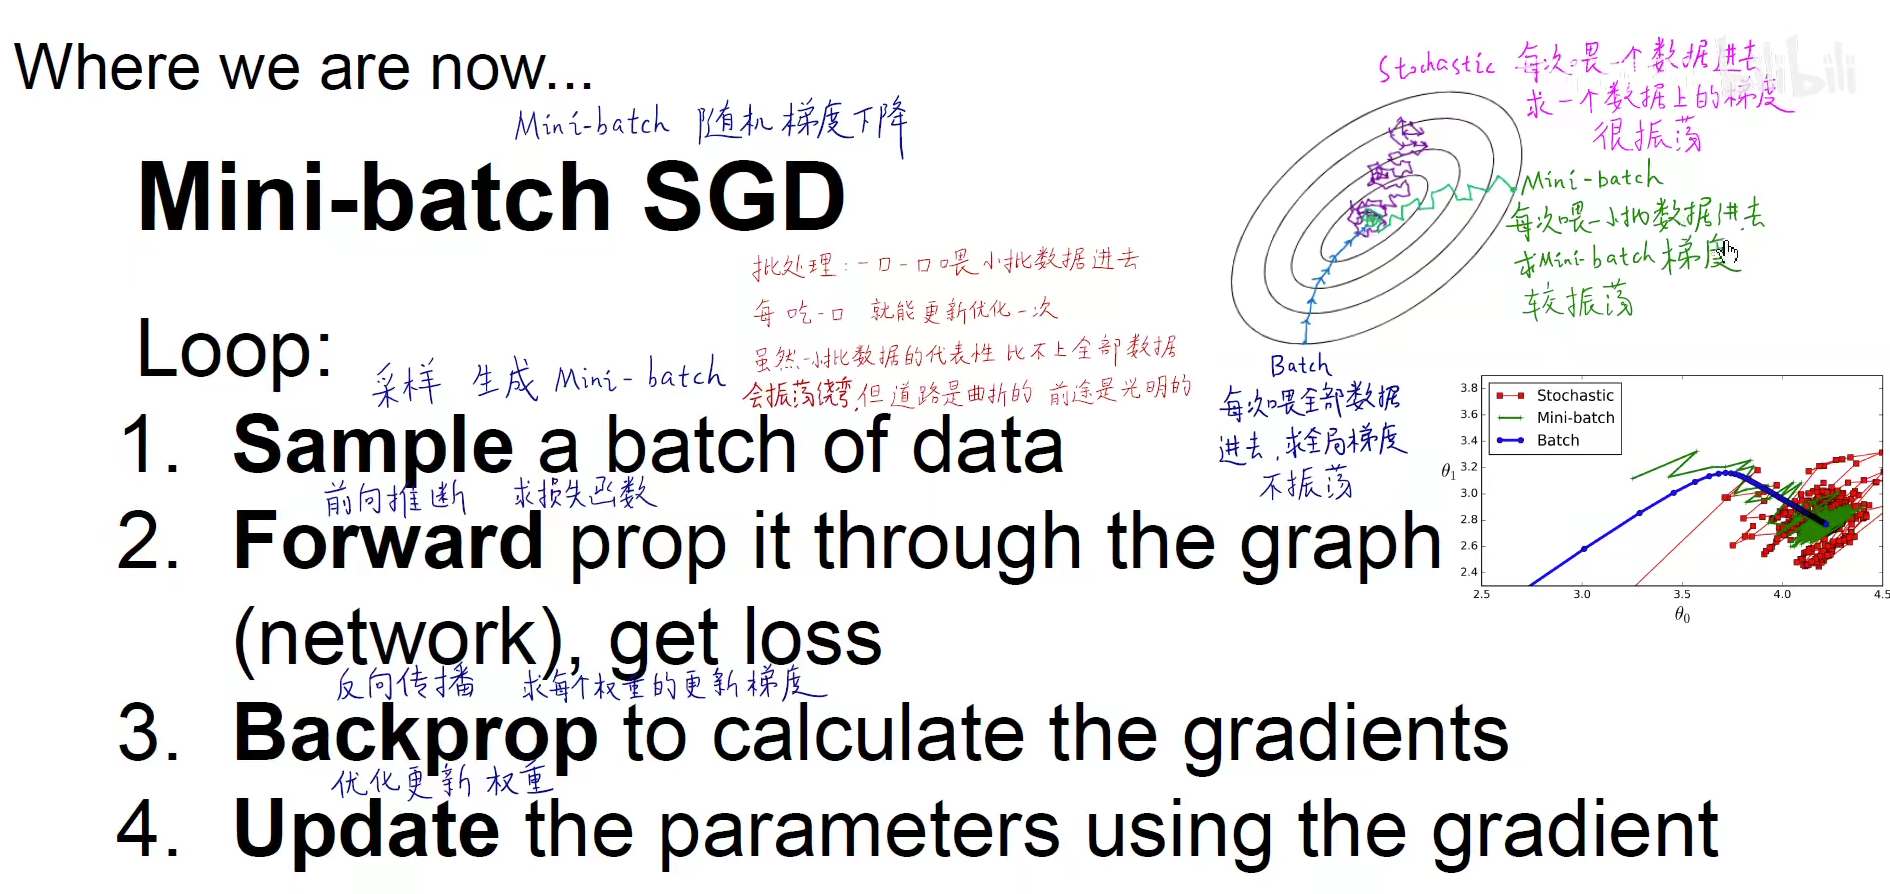 Where we are now...
Mini-batch 随机梯度下降
Mini-batch SGD
批处理：一口一口喂小批数据进去
每吃一口 就能更新优化一次
虽然一小批数据的代表性比不上全部数据
会振荡绕弯,但道路是曲折的 前途是光明的
Loop:
采样 生成 Mini-batch
1. Sample a batch of data
前向推断 求损失函数
2. Forward prop it through the graph
(network), get loss
反向传播 求每个权重的更新梯度
3. Backprop to calculate the gradients
优化更新权重
4. Update the parameters using the gradient
Stochastic 每次喂一个数据进去
求一个数据上的梯度
很振荡
bilibili
Mini-batch
每次喂一小批数据进去
求Mini-batch梯度
较振荡
Batch
每次喂全部数据
进去,求全局梯度
不振荡
Stochastic
Mini-batch
Batch
3.8
3.6
3.4
3.2
3.0
2.8
2.6
2.4
θ1
2.5 3.0 3.5 4.0 4.5
θ0